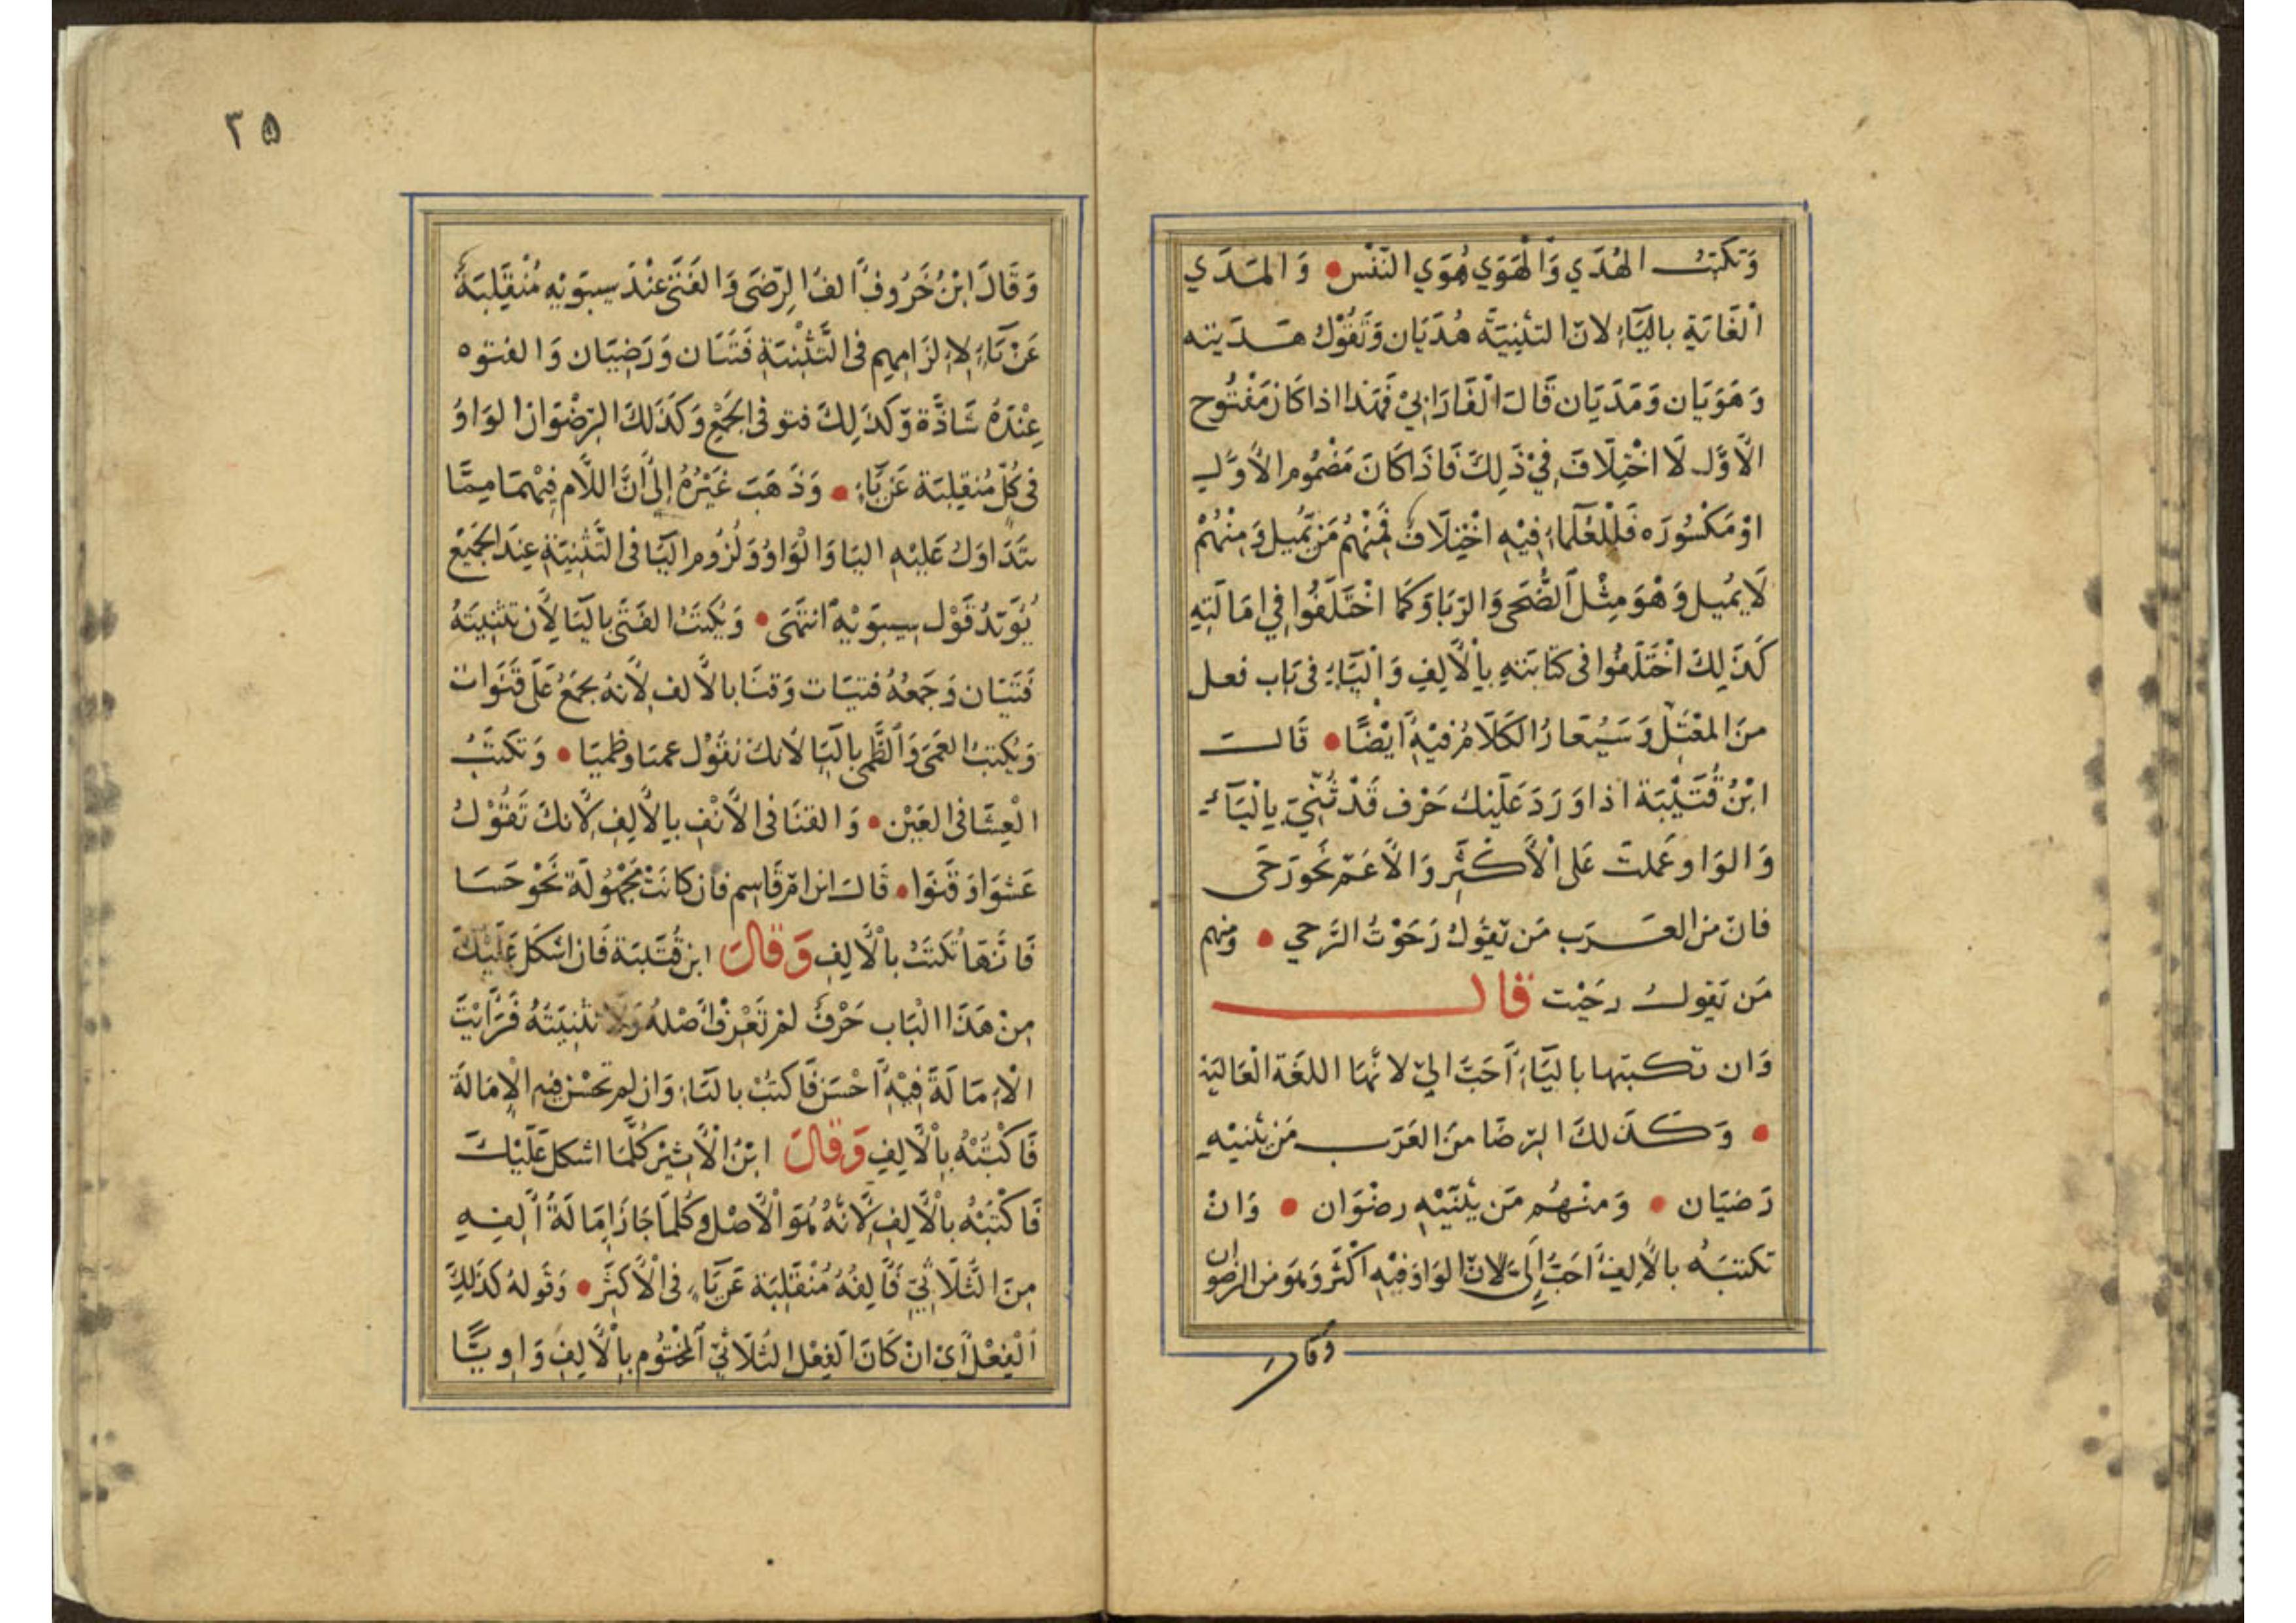 وَتكتبُ الهُدَي وَالْهَوَي هَوَي النَفْس • وَالمَدَي
الْغَايَةِ بِاليَاءِ لانّ التثنِيَةَ هُدَيَان وَتَقُوْلُ هَدَيته
وَهَوَيَان وَمَدَيَان قَالَ الْفَارَابِيْ فَهَذا اذا كَانَ مَفْتُوح
الاَوَّل لَا اخْتِلَافَ فِيْ ذَلِكَ فَاذَا كَانَ مَضْمُوم الأوَّل
اوْ مَكْسُورَه فَلِلْعُلَمَاءِ فِيْهِ اخْتِلَافٌ فَمِنْهُمْ مَنْ يُمِيل وَمِنْهُمْ
لَا يُمِيل وَهْوَ مِثْل الضُّحَى وَالرِبَا وَكَمَا اخْتَلَفُوا فِي امَالَتِهِ
كَذَلِكَ اخْتَلَفُوا فى كتَابَتهِ بِالْأَلِفِ وَالْيَاءِ فى بَاب فعل
مِنَ المعْتَل وَسَيُعَادُ الكَلَامُ فيْهِ أَيْضًا • قَالَ
ابْنُ قُتَيْبَة اذا وَرَدَ عَلَيْكَ حَرْف قَدْ ثُنِّيَ بِالْيَاءِ
وَالوَاو عَملتَ عَلى الْأَكْثَرِ وَالْأعَمّ نَحْو رَحَى
فانّ مَن العَرَب مَن يَقُولُ رَحَوْتُ الرَحي • ومنهم
مَن يَقول رحَيْت قال
وَان تكتبهَا باليَاءِ أَحَبُّ اليّ لانّهَا اللغَة الْعَاليَة
• وَكَذلكَ الرِضَا مِنَ العَرَب مَن يثنيْهِ
رَضيَان • وَمنْهُم مَن يُثَنّيْهِ رضْوَان • وَانْ
تكتبَهُ بالألِف أَحَبُّ إِلَيَّ لانّ الوَاو فِيْهِ اكْثَر وَهوَ من الرضوان
وَقَالَ
٣٥
وَقَالَ ابْنُ خَرُوف ألفُ الرِّضَى وَالفَتَى عِنْدَ سِيبَوَيْهِ مُنْقَلِبَةٌ
عَنْ يَاءٍ لِإلزَامِهِم فى التَّثْنِيَةِ فَتَيَان وَرَضِيَان وَالفتوه
عِنْدَهُ شَاذَّة وَكَذَلِكَ فتو فى الجَمْعِ وَكَذَلكَ الرِضْوَان الوَاوُ
فى كُلٍّ مُنقلِبَة عَنْ يَاءٍ • وَذَهَبَ غَيْرُهُ إِلَى أَنَّ اللَّام فِيْهِمَا مِمَّا
يتَدَاوَلُ عَلَيْهِ اليَا وَالْوَاوُ وَلُزُوم اليَا فى التَّثْنِيَةِ عِنْدَ الجَمِيْع
يُؤيّدُ قَوْل سِيبَوَيْهِ انتَهَى • وَيُكتَبُ الفَتَى بِاليَا لأن تثنِيَتَهُ
فَتَيَان وَجَمْعُهُ فتيَات وَقنَا بالألف لأَنهُ يجمَعُ عَلَى قَنَوَات
وَيُكتبُ العَمَى وَالظَّمى باليَا لانكَ تقُوْل عميَا وظميَا • وَتكتَبُ
الْعِشَا فى العَيْن • وَالقنَا فى الأَنْفِ بالأَلِفِ لِأَنكَ تَقُوْلُ
عَشْوَا وَقَنْوَا • قَالَ ابن امّ قَاسِم فإن كانَتْ مجْهُولَة نَحْو حَسَا
فَانَّهَا تُكتَبُ بالْأَلِفِ وَقَالَ ابن قُتَيْبَة فَان اشكَل عَلَيْكَ
مِنْ هَذَا الْبَاب حَرْفٌ لمْ تَعْرِفْ أَصْلَهُ وَلَا تثْنِيَتَهُ فَرَأَيْتَ
الْإمَالَةَ فِيْهِ أَحْسَن فَاكتُبْ باليَاءِ وَان لم تحْسُن فِيهِ الْإِمَالَة
فَاكْتُبْهُ بِالْأَلِفِ وَقَالَ ابْنُ الْأَثِيْر كُلَّمَا اشكل عَلَيْكَ
فَاكْتُبْهُ بالْأَلِفِ لِأَنَّهُ هُوَ الْأَصْل وَكُلمَا جَازَ إِمَالَةُ أَلِفِهِ
مِنَ الثّلَاثِيّ فَأَلِفُهُ مُنْقَلِبَة عَنْ يَاءٍ فى الْأَكثَر • وَقَولهُ كَذَلِكَ
الْفِعْل أَىْ انْ كَانَ الْفِعْل الثُلَاثِيّ المَخْتُوم بِالْأَلِفِ وَاوِيًّا